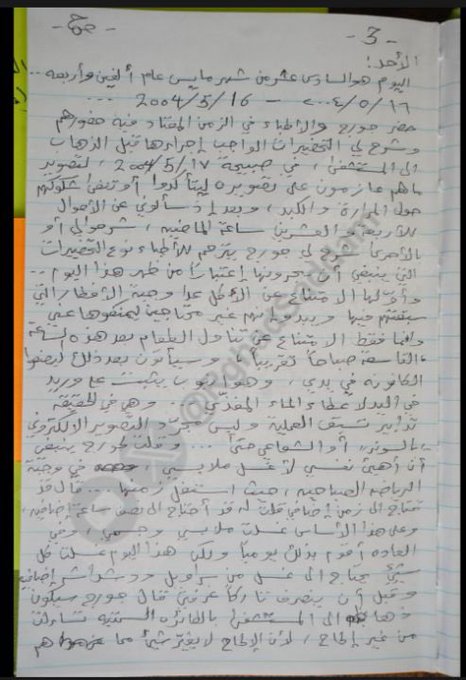 - 3 -
الأحد:
اليوم هو السادس عشر من شهر مايس عام ألفين وأربعه ...
٢٠٠٤/٥/١٦ - 2004/5/16 ...
حضر جورج والأطباء في الزمن المعتاد فيه حضورهم
وشرح لي التحضيرات الواجب إجراءها قبل الذهاب
الى المستشفى، في صبيحة 2004/5/17، لتصوير
ماهم عازمون على تصويره ليتأكدوا أو تنفى شكوكهم
حول المرارة والكبد، وبعد إذ سألوني عن الأحوال
للأربعة والعشرين ساعة الماضيه، شرحوا لي أو
بالأحرى شرح لي جورج يترجم للأطباء نوع التحضيرات
التي ينبغي أن يجرونها إعتباراً من ظهر هذا اليوم ..
وأولها الامتناع عن الأكل عدا وجبة الأفطار التي
سبقتهم فيها ويبدو انهم غير محتاجين ليمنعوها عني
وانما فقط الامتناع عن تناول الطعام بعد هذه الساعة
التاسعة صباحاً تقريباً، وسيأتون بعد ذلك ليضعوا
الكانونه في يدي، وهو انبوب يثبت على وريد
في اليد لاعطاء الماء المغذي ... وهي في الحقيقة
تدابير تسبق العملية وليس مجرد التصوير الالكتروني
بالسونر، أو الشعاعي حتى ... وقلت لجورج ينبغي
أن أهيئ نفسي لأغسل ملابسي في وجبة
الرياضه الصباحيه، حيث استغل زمنها ... قال قد
تحتاج الى زمن إضافي قلت له قد أحتاج الى نصف ساعة إضافيه،
وعلى هذا الأساس غسلت ملابسي وجسمي، وفي
العاده أقوم بذلك يومياً ولكن هذا اليوم غسلت كل
شيئ يحتاج الى غسل من سراويل ودشداشه إضافيه
وقبل أن ينصرف تاركاً غرفتي قال جورج سيكون
ذهابك الى المستشفى بالطائره السمتيه تساءلت
من غير إلحاح، لأن الإلحاح لا يغير شيئاً مما هم